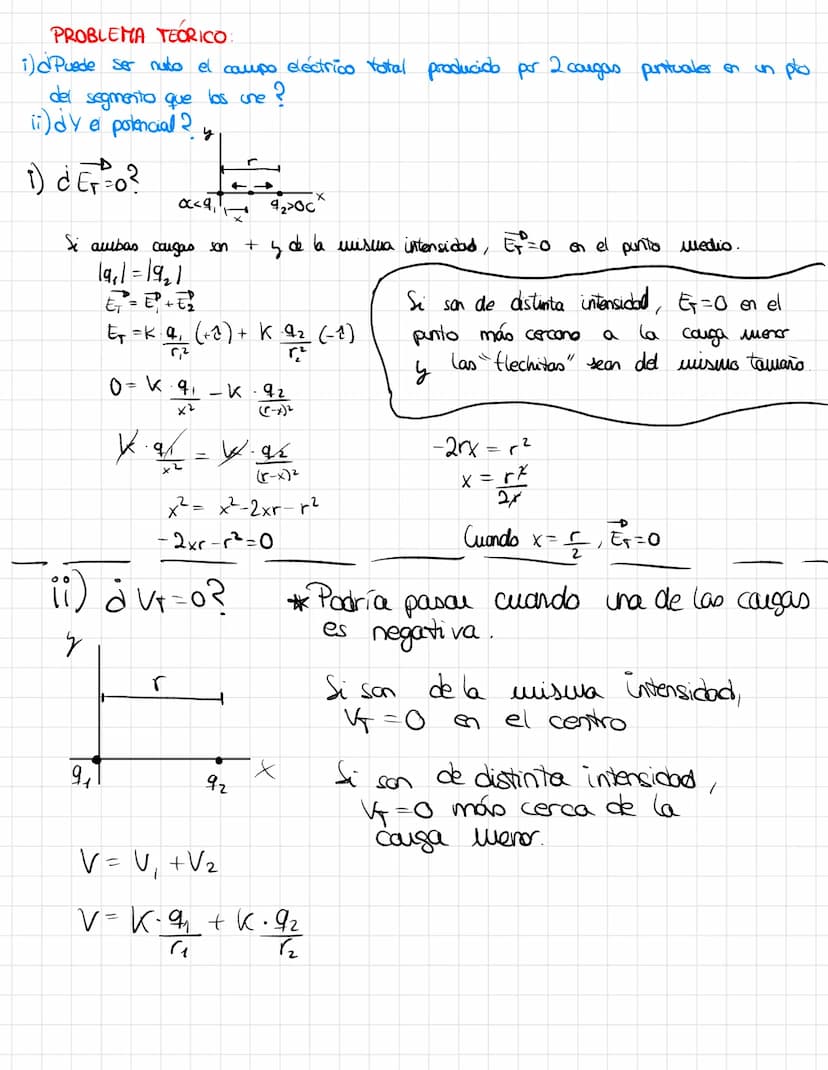 PROBLEMA TEÓRICO:
i) ¿Puede ser nulo el campo eléctrico total producido por 2 cargas puntuales en un pto
del segmento que los une?
ii) ¿Y el potencial?
y
r
i) ¿E_T=0?
0C<q₁ x q₂>0C x
Si ambas cargas son + y de la misma intensidad, E_T=0 en el punto medio.
|q₁| = |q₂|
E_T = E₁ + E₂
E_T = K · q₁/r₁² (+î) + K · q₂/r₂² (-î)
0 = K · q₁/x² - K · q₂/(r-x)²
K · q₁/x² = K · q₂/(r-x)²
x² = x² - 2xr - r²
-2xr - r² = 0
Si son de distinta intensidad, E_T=0 en el
punto más cercano a la carga menor
y las "flechitas" sean del mismo tamaño.
-2rx = r²
x = r²/2r
Cuando x = r/2, E_T=0
ii) ¿V_T=0?
* Podría pasar cuando una de las cargas
es negativa.
y
r
q₁ q₂ x
Si son de la misma intensidad,
V_T = 0 en el centro
Si son de distinta intensidad,
V_T=0 más cerca de la
carga menor.
V = V₁ + V₂
V = K · q₁/r₁ + K · q₂/r₂